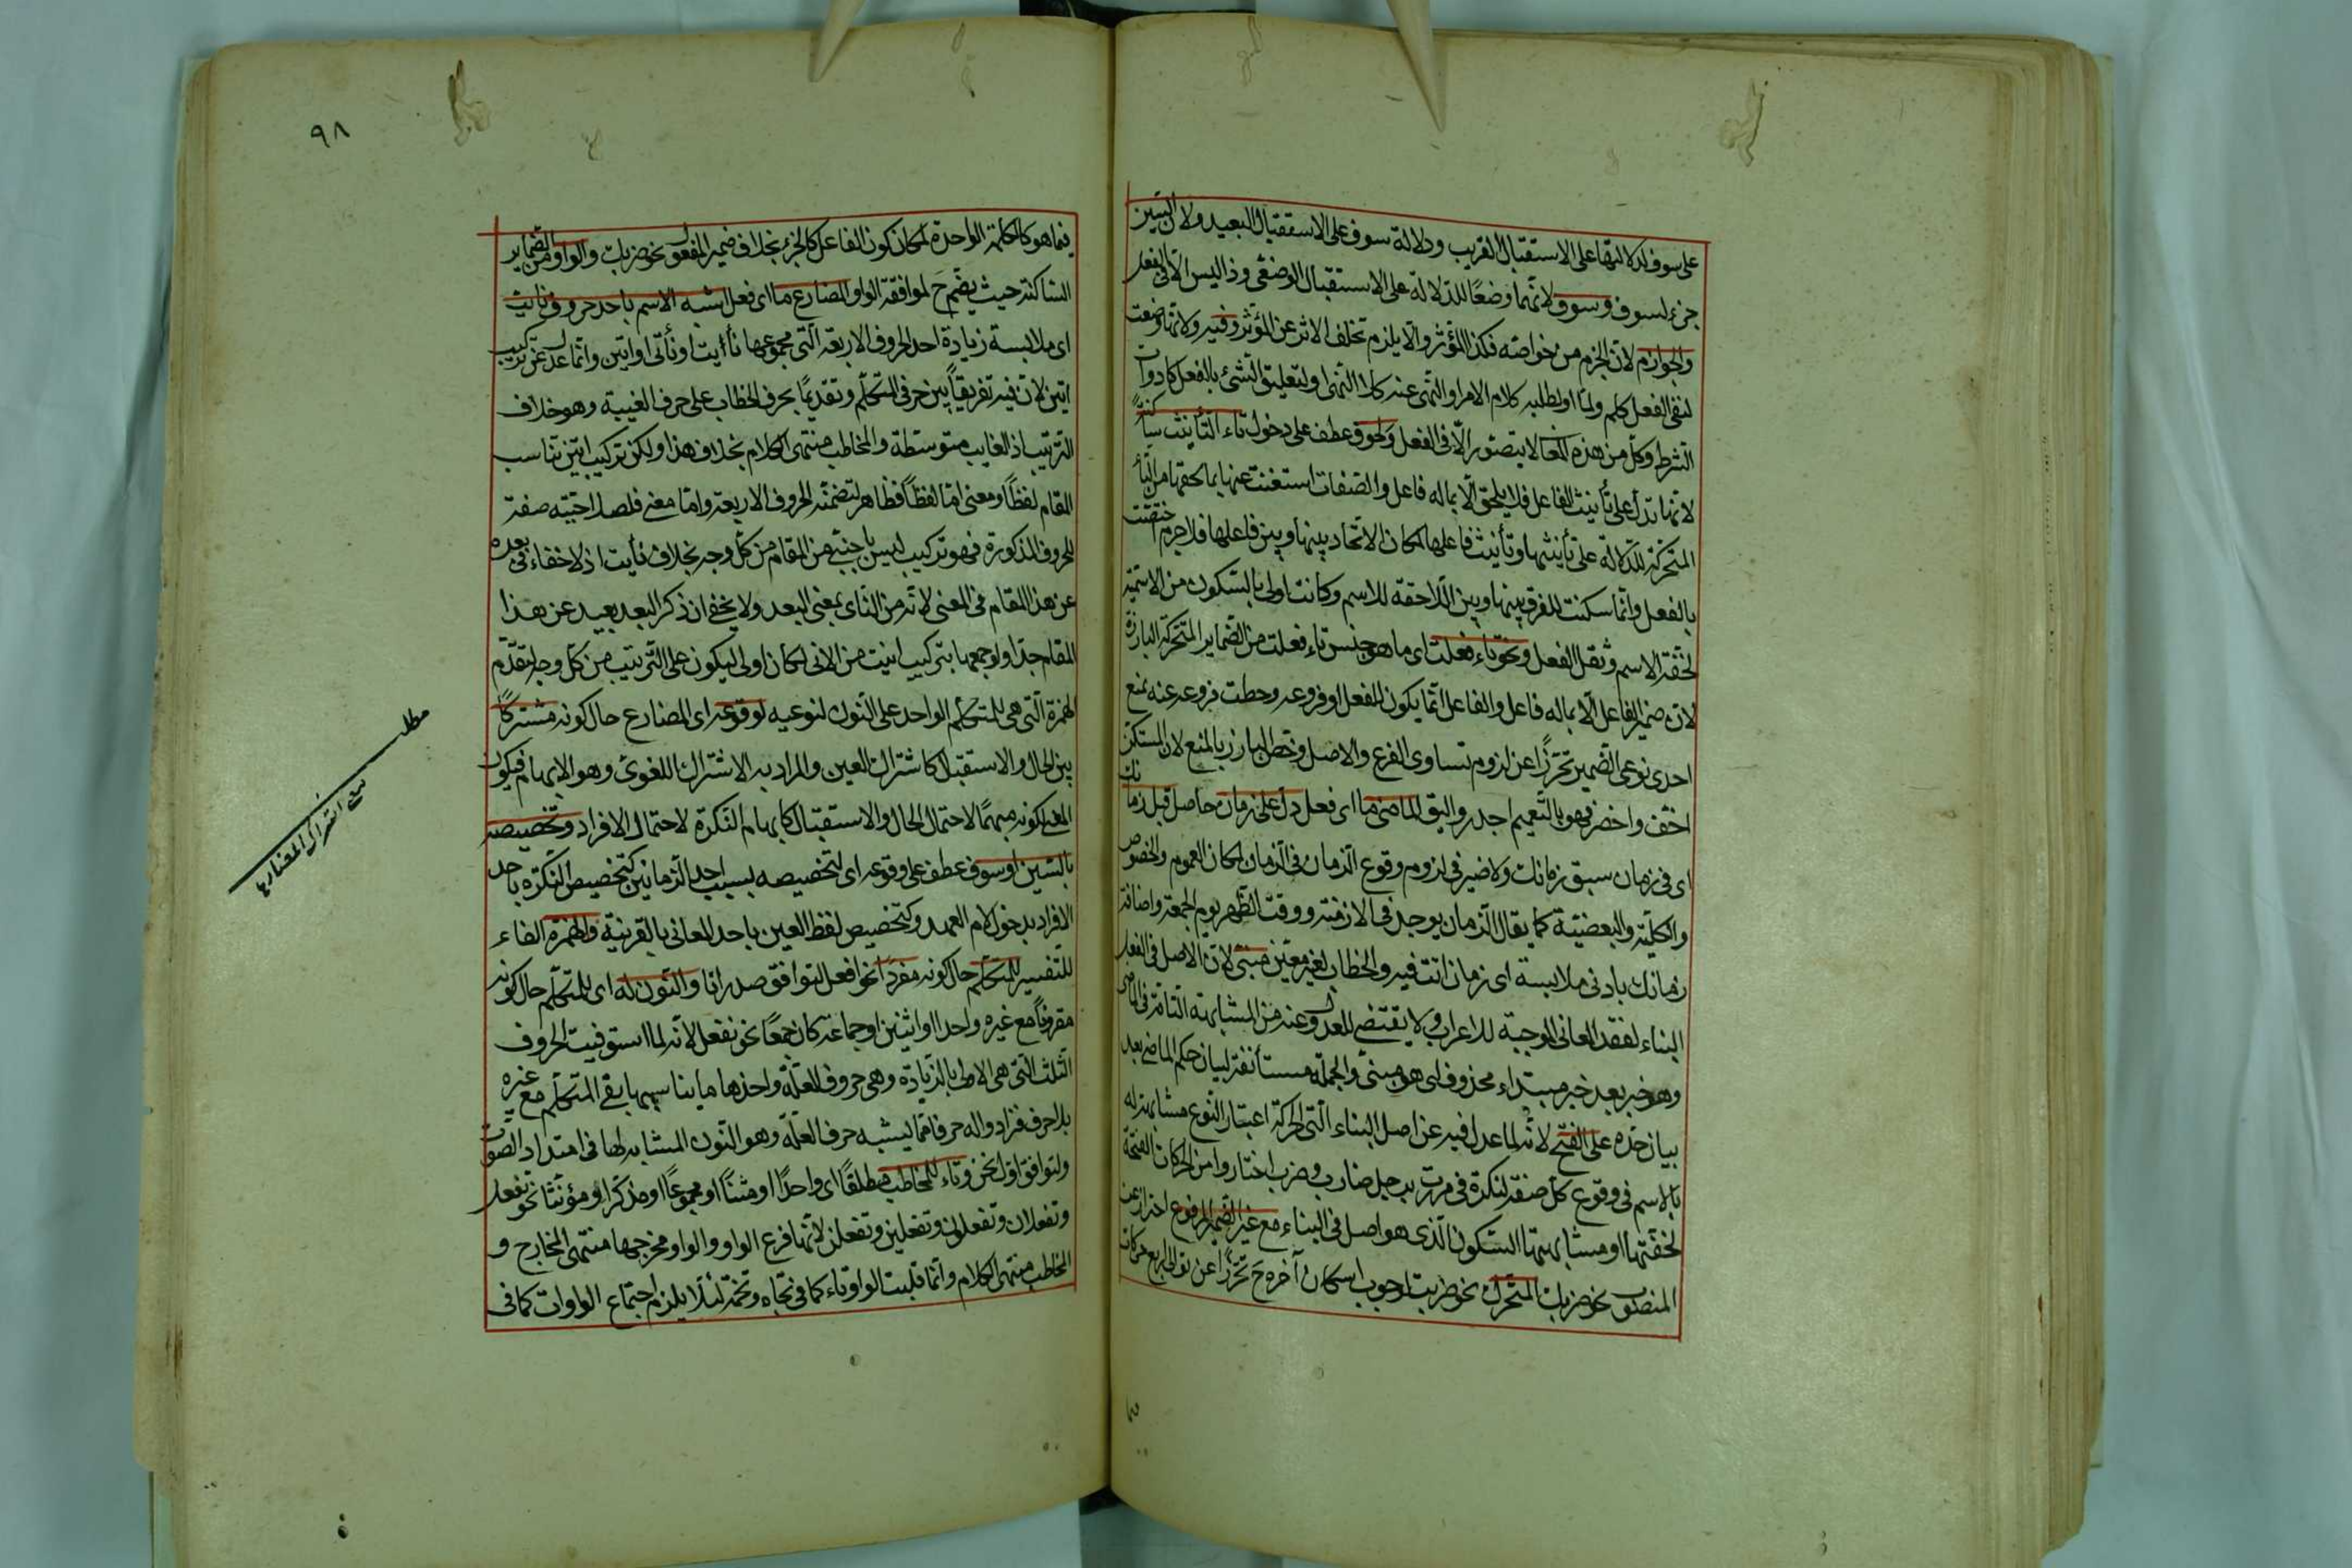 على سوف لدلالتها على الاستقبال القريب ودلالة سوف على الاستقبال البعيد ولان السين
جزء لسوف وسوف لانهما وضعا للدلالة على الاستقبال الوضعى وذا ليس الا فى الفعل
والجوازم لان الجزم من خواصه فكذا المؤثر والا يلزم تخلف الاثر عن المؤثر وفيه ولانها وضعت
لنفى الفعل كلم ولما او لطلبه كلام الامر او النهى عنه كلا النهى او لتعليق الشئ بالفعل كادوات
الشرط وكل من هذه المعا لا يتصور الا فى الفعل ولحوق عطف على دخول تاء التأنيث ساكنة
لانها تدل على تأنيث الفاعل فلا يلحق الا بما له فاعل والصفات استغنت عنها بما لحقها من التاء
المتحركة للدلالة على تأنيثها وتأنيث فاعلها لمكان الاتحاد بينها وبين فاعلها فلا جرم اختصت
بالفعل وانما سكنت للفرق بينها وبين اللاحقة للاسم وكانت اولى بالسكون من الاسمية
لخفة الاسم وثقل الفعل ونحو تاء فعلت اى ما هو جنس تاء فعلت من الضماير المتحركة البارزة
لان ضمير الفاعل الا بما له فاعل والفاعل انما يكون للفعل او فروعه وحطت فروعه عنه بمنع
احدى نوعى الضمير تحرزا عن لزوم تساوى الفرع والاصل وخص البارز بالمنع لان المستكن
اخف واخصر فهو بالتعميم اجدر واليق الماضى ما اى فعل دل على زمان حاصل قبل زمانك
اى فى زمان سبق زمانك ولا ضير فى لزوم وقوع الزمان فى الزمان لمكان العموم والخصوص
والكلية والبعضية كما يقال الزمان يوجد فى الازمنة ووقت الظهر يوم الجمعة واضافة
زمانك بادنى ملابسة اى زمان انت فيه والخطاب لغير معين مبنى لان الاصل فى الفعل
البناء لفقد المعانى الموجبة للاعراب ولا يقتضى للعدول عنه من المشابهة التامة فى الماضى
وهو خبر بعد خبر مبتداء محذوف اى هو مبنى والجملة مستأنفة لبيان حكم الماضى بعد
بيان حده على الفتح لانه لما عدل فيه عن اصل البناء التى الحركة اعتبار النوع مشابهة له
بالاسم فى وقوع كل صفة لنكرة فى مررت برجل ضارب وضرب اختاروا من الحركات الفتحة
لخفتها او مشابهتها السكون الذى هو اصل فى البناء مع غير الضمير المرفوع احتراز عن
المنصوب نحو ضربك المتحرك نحو ضربت لوجوب اسكان آخره ح تحرزا عن توالى اربع حركات
٩٨
فيما هو كالكلمة الواحدة لمكان كون الفاعل كالجزء بخلاف ضمير المفعول نحو ضربك والواو من الضماير
الساكنة حيث يضم ح لموافقة الواو المضارع ما اى فعل اشبه الاسم باحد حروف نأيت
اى ملابسة زيادة احد الحروف الاربعة التى مجموعها نأيت او نأتى او اتين وانما عدل عن تركيب
اتين لان فيه تفريقا بين حرفى التكلم وتقديما بحرف الخطاب على حرف الغيبة وهو خلاف
الترتيب اذ الغايب متوسطة والمخاطب منتهى الكلام بخلاف هذا ولكن تركيب اتين تناسب
المقام لفظا ومعنى اما لفظا فظاهر لتضمنه الحروف الاربعة واما معنى فلصلاحيته صفة
للحروف المذكورة فهو تركيب ليس باجنبى من المقام من كل وجه بخلاف نأيت اذ لا خفاء فى بعده
عن هذا المقام فى المعنى لانه من النأى بمعنى البعد ولا يخفى ان ذكر البعد بعيد عن هذا
المقام جدا ولو جمعها بتركيب انيت من الانى لكان اولى ليكون على الترتيب من كل وجه بتقدم
الهمزة التى هى للمتكلم الواحد على النون لنوعيه لوقوعه اى المضارع حال كونه مشتركا
بين الحال والاستقبال كاشتراك العين والمراد به الاشتراك اللغوى وهو الابهام فيكون
المعنى لكونه مبهما لاحتمال الحال والاستقبال كابهام النكرة لاحتمال الافراد وتخصيصه
بالسين او سوف عطف على وقوعه اى لتخصيصه بسبب احد الزمانين كتخصيص النكرة باحد
الافراد بدخول لام العهد وكتخصيص لفظ العين باحد المعانى بالقرينة والهمزة الفاء
للتفسير للمتكلم حال كونه مفردا نحو افعل لتوافق صدر انا والنون له اى للمتكلم حال كونه
مقرونا مع غيره واحدا او اثنين او جماعة كان جمعا نحو نفعل لانه لما استوفيت الحروف
الثلث التى هى الاولى بالزيادة وهى حروف العلة واخذها ما يناسبها بقى المتكلم مع غيره
بلا حرف فزادوا له حرفا مما يشبه حرف العلة وهو النون المشابه لها فى امتداد الصوت
ولتوافق اول نحن وتاء للمخاطب مطلقا اى واحدا او مثنا او مجموعا او مذكرا او مؤنثا نحو تفعل
وتفعلان وتفعلون وتفعلين وتفعلن لانها فرع الواو والواو مخرجها منتهى المخارج و
المخاطب منتهى الكلام وانما قلبت الواو تاء كما فى تجاه وتخمة لئلا يلزم اجتماع الواوات كما فى
مطلب
اشتراك المضارع